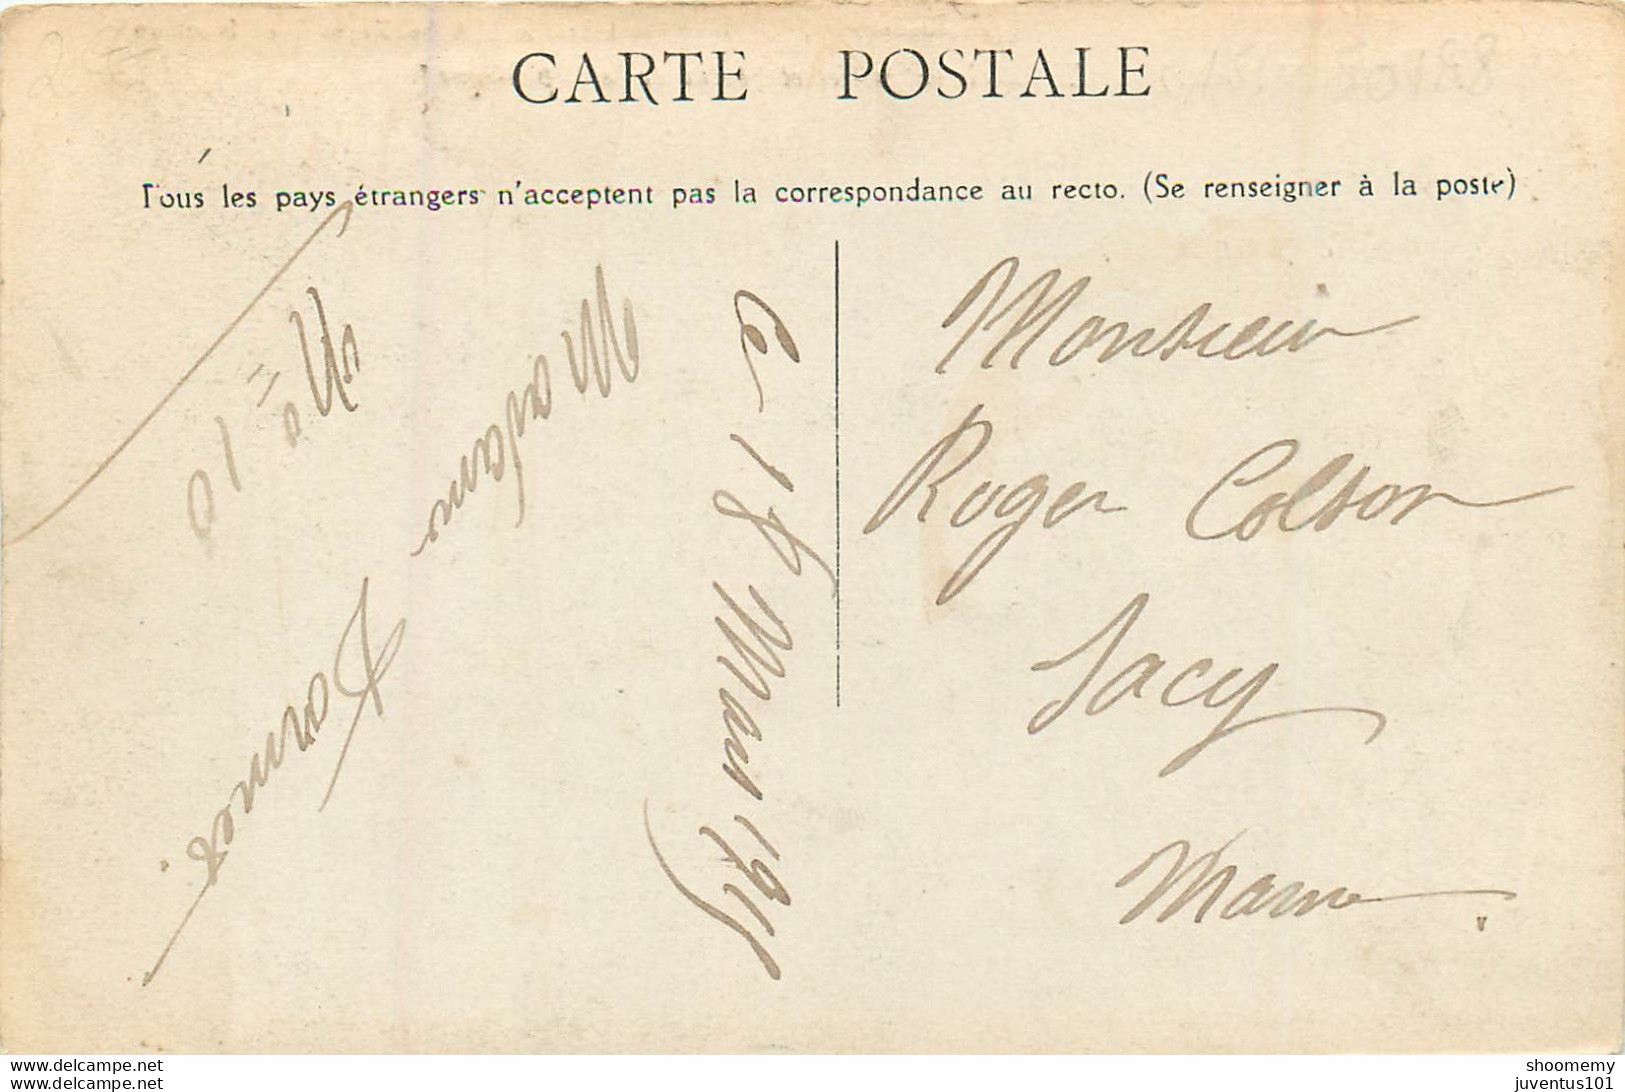 CARTE POSTALE
Tous les pays étrangers n'acceptent pas la correspondance au recto. (Se renseigner à la poste)
Monsieur
Roger Colson
Sacy
Marne
Le 18 Mars 1915
N° 10
www.delcampe.net
shoomemy
juventus101